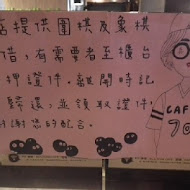 店提供圍棋及象棋
借,有需要者至櫃台
押證件。離開時記
歸還,並領取證件。
謝謝您的配合。
CAF
70